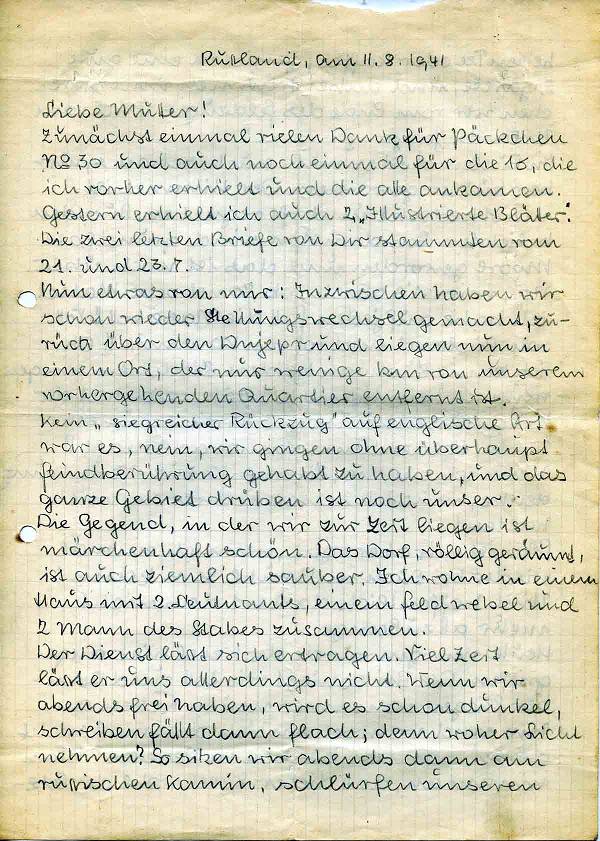 Rußland, am 11.8.1941
Liebe Mutter!
Zunächst einmal vielen Dank für Päckchen
No 30 und auch noch einmal für die 16, die
ich vorher erhielt und die alle ankamen.
Gestern erhielt ich auch 2 „Illustrierte Blätter".
Die zwei letzten Briefe von Dir stammten vom
21. und 23.7.
Nun etwas von mir: Inzwischen haben wir
schon wieder Stellungswechsel gemacht, zu-
rück über den Dnjepr und liegen nun in
einem Ort, der nur wenige km von unserem
vorhergehenden Quartier entfernt ist.
Kein „siegreicher Rückzug" auf englische Art
war es, nein, wir gingen ohne überhaupt
Feindberührung gehabt zu haben, und das
ganze Gebiet drüben ist noch unser.
Die Gegend, in der wir zur Zeit liegen ist
märchenhaft schön. Das Dorf, völlig geräumt,
ist auch ziemlich sauber. Ich wohne in einem
Haus mit 2 Leutnants, einem Feldwebel und
2 Mann des Stabes zusammen.
Der Dienst läßt sich ertragen. Viel Zeit
läßt er uns allerdings nicht. Wenn wir
abends frei haben, wird es schon dunkel,
schreiben fällt dann flach; denn woher Licht
nehmen? So sitzen wir abends dann am
rußischen Kamin, schlürfen unseren